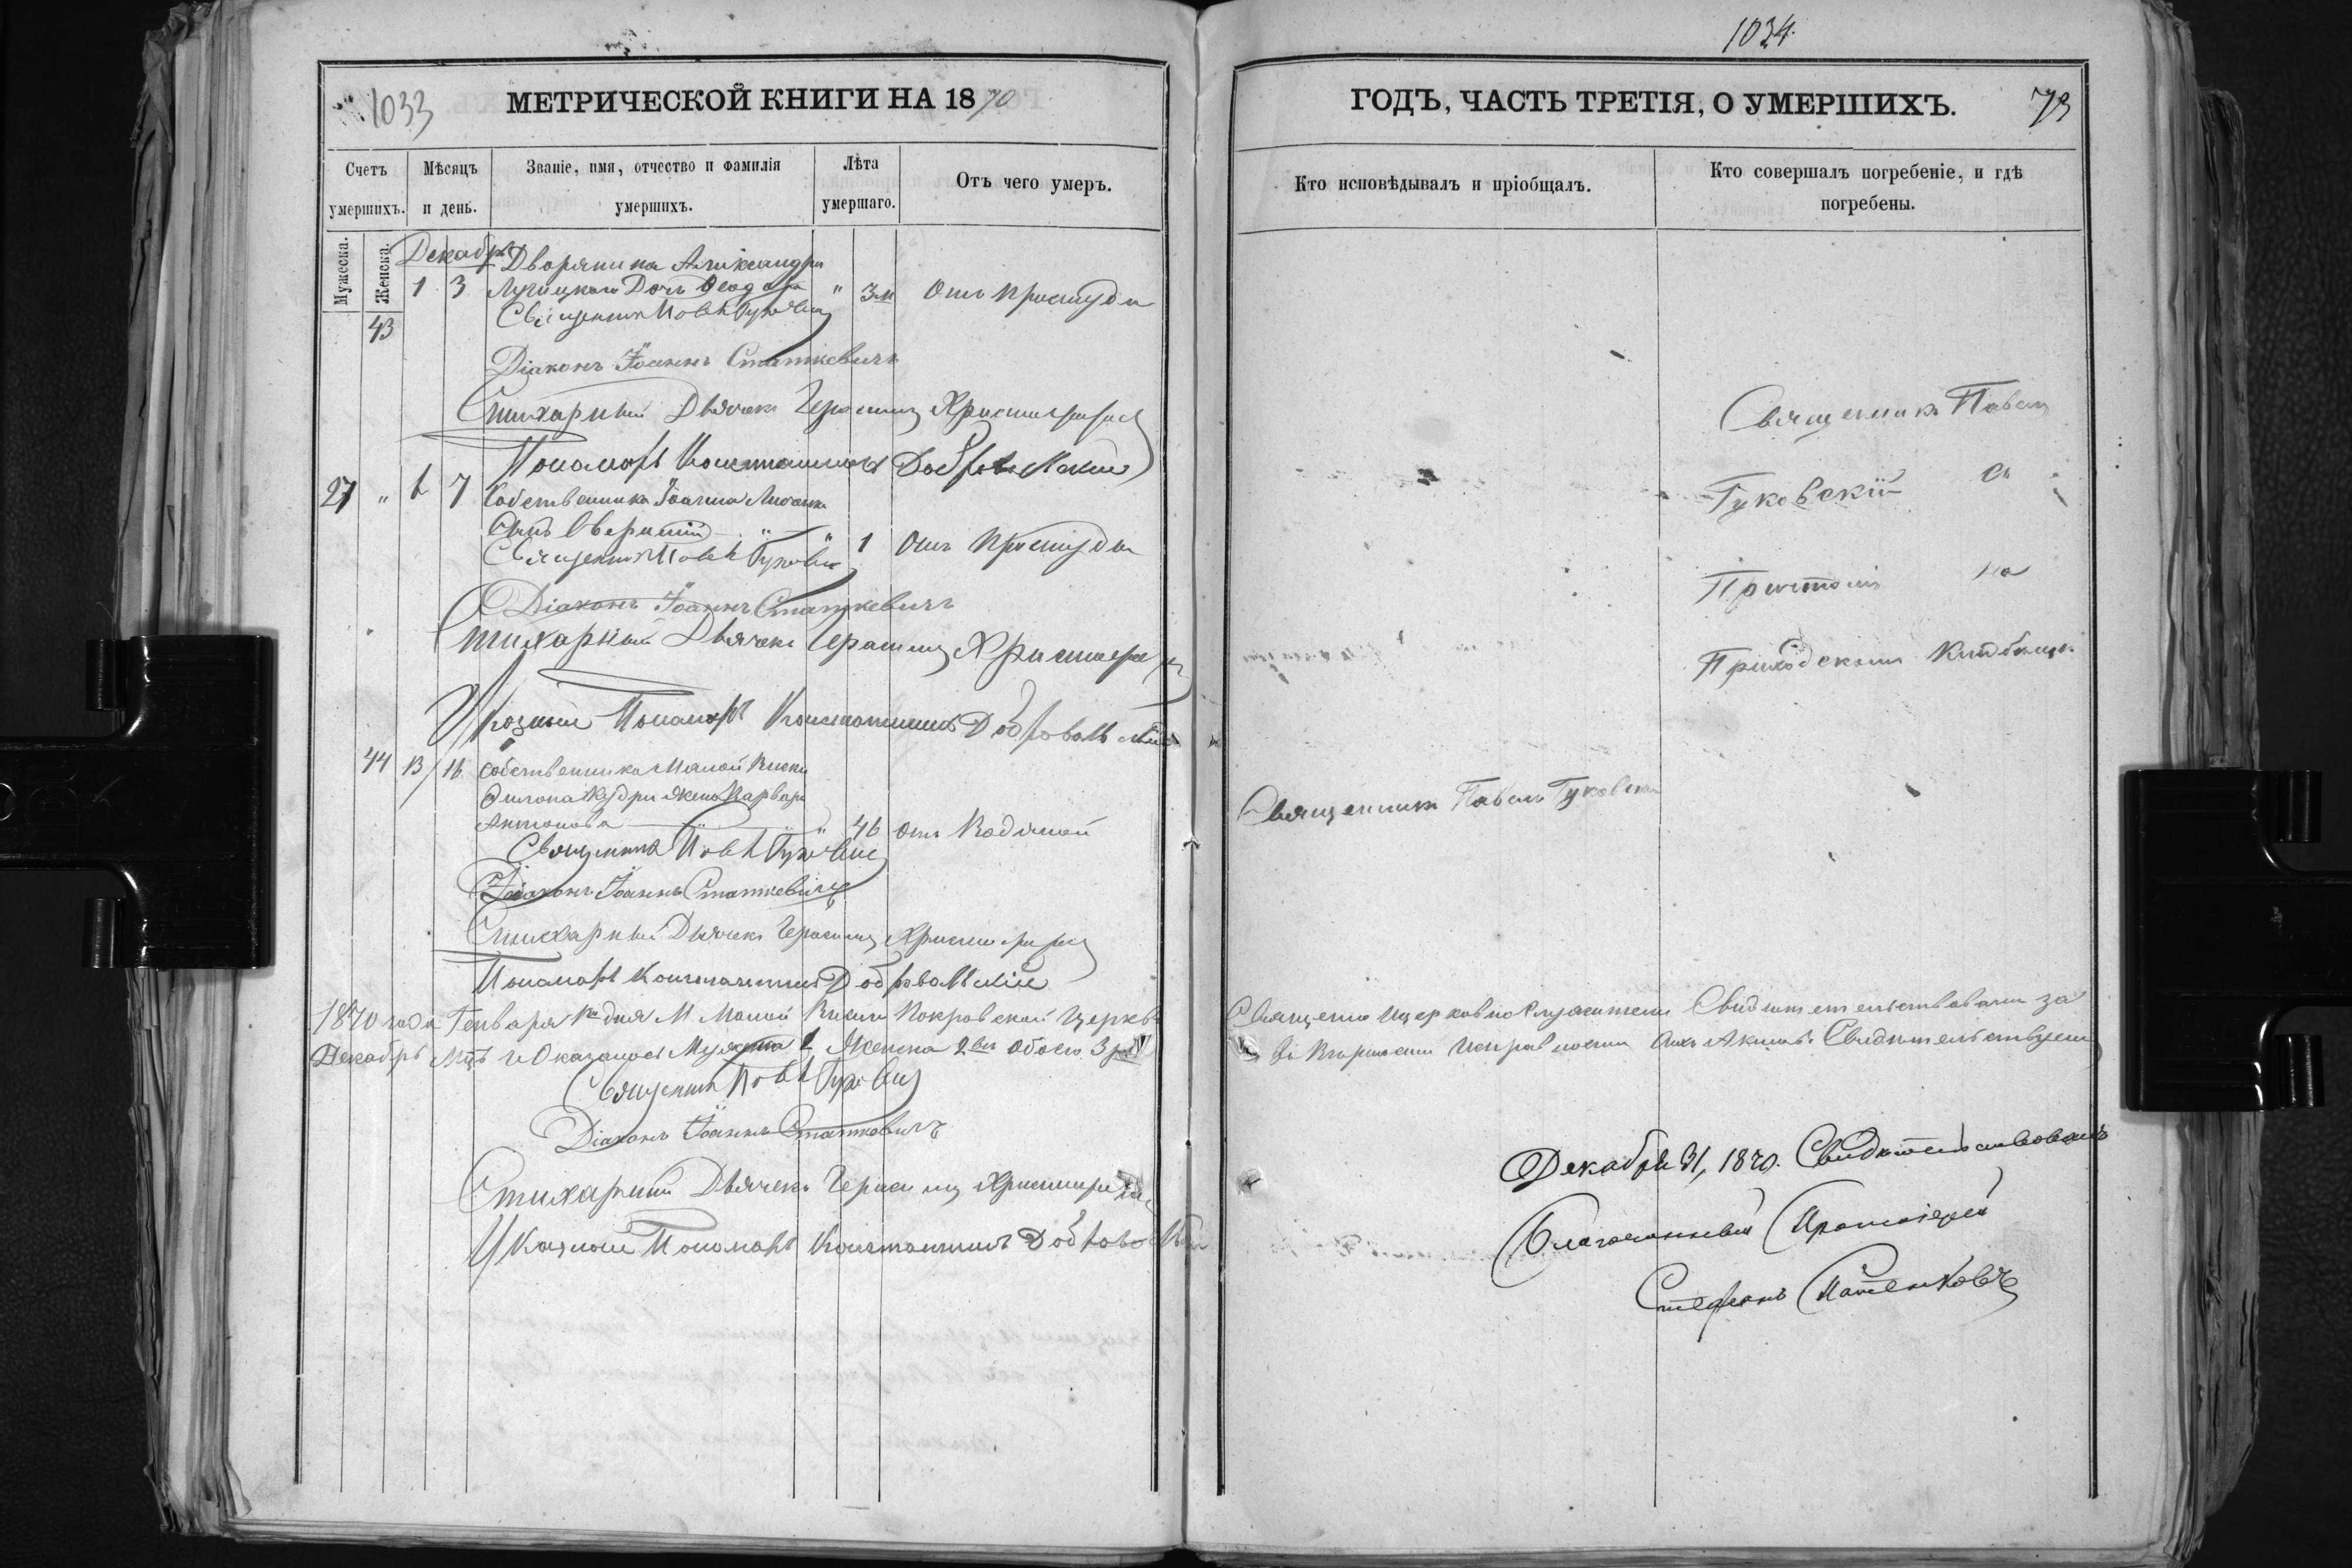 1033
МЕТРИЧЕСКОЙ КНИГИ НА 1870
Счетъ умершихъ.
Мѣсяцъ и день.
Званіе, имя, отчество и фамилія умершихъ.
Лѣта умершаго.
Отъ чего умеръ.
Мужеска.
Женска.
Декабрь
43
1 3
Дворянина Александра
Дочь Ѳеодора " 3 м Отъ простуды
Священникъ Павелъ Гуковскій
Діаконъ Іоаннъ Статкевичъ
Стихарный Дьячекъ Герасимъ
Пономарь Константинъ Добровольскій
27 " 6 7 Собственника Іоанна
Сынъ " 1 Отъ простуды
Священникъ Павелъ Гуковскій
Діаконъ Іоаннъ Статкевичъ
Стихарный Дьячекъ Герасимъ
Указный Пономарь Константинъ Добровольскій
44 13/16 Собственника Малой
жена Варвара
Антонова " 46 отъ
Священникъ Павелъ Гуковскій
Діаконъ Іоаннъ Статкевичъ
Стихарный Дьячекъ Герасимъ
Пономарь Константинъ Добровольскій
1870 года Генваря дня М. Малой Покровской Церкви
Декабрь Мцѣ Оказалось Мужеска 1 Женска 2 обоего 3
Священникъ Павелъ Гуковскій
Діаконъ Іоаннъ Статкевичъ
Стихарный Дьячекъ Герасимъ
Указный Пономарь Константинъ Добровольскій
1034
ГОДЪ, ЧАСТЬ ТРЕТІЯ, О УМЕРШИХЪ.
73
Кто исповѣдывалъ и пріобщалъ.
Кто совершалъ погребеніе, и гдѣ погребены.
Священникъ Павелъ
Гуковскій съ
на
Приходскомъ Кладбищѣ
Священникъ Павелъ Гуковскій
Священно Церковнослужители Свидѣтельствовали за
исправности Свидѣтельствуемъ
Декабря 31, 1870. Свидѣтельствовалъ
Благочинный Протоіерей
Стефанъ